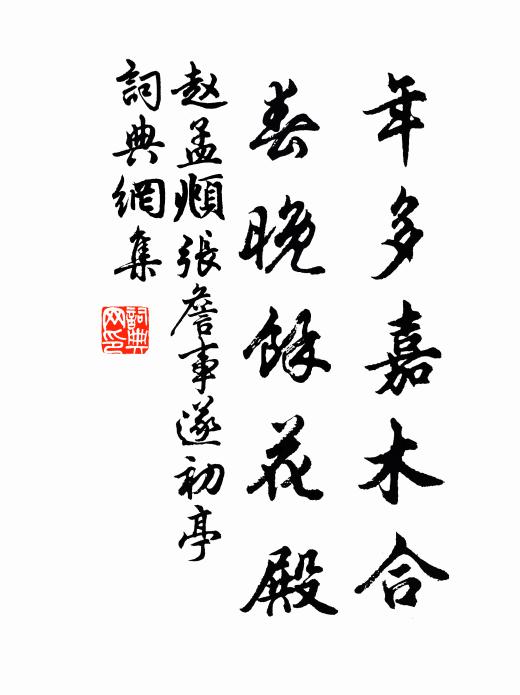 年多嘉木合
春晚餘花殿
赵孟頫張詹事遂初亭
詞典網集
詞典网印